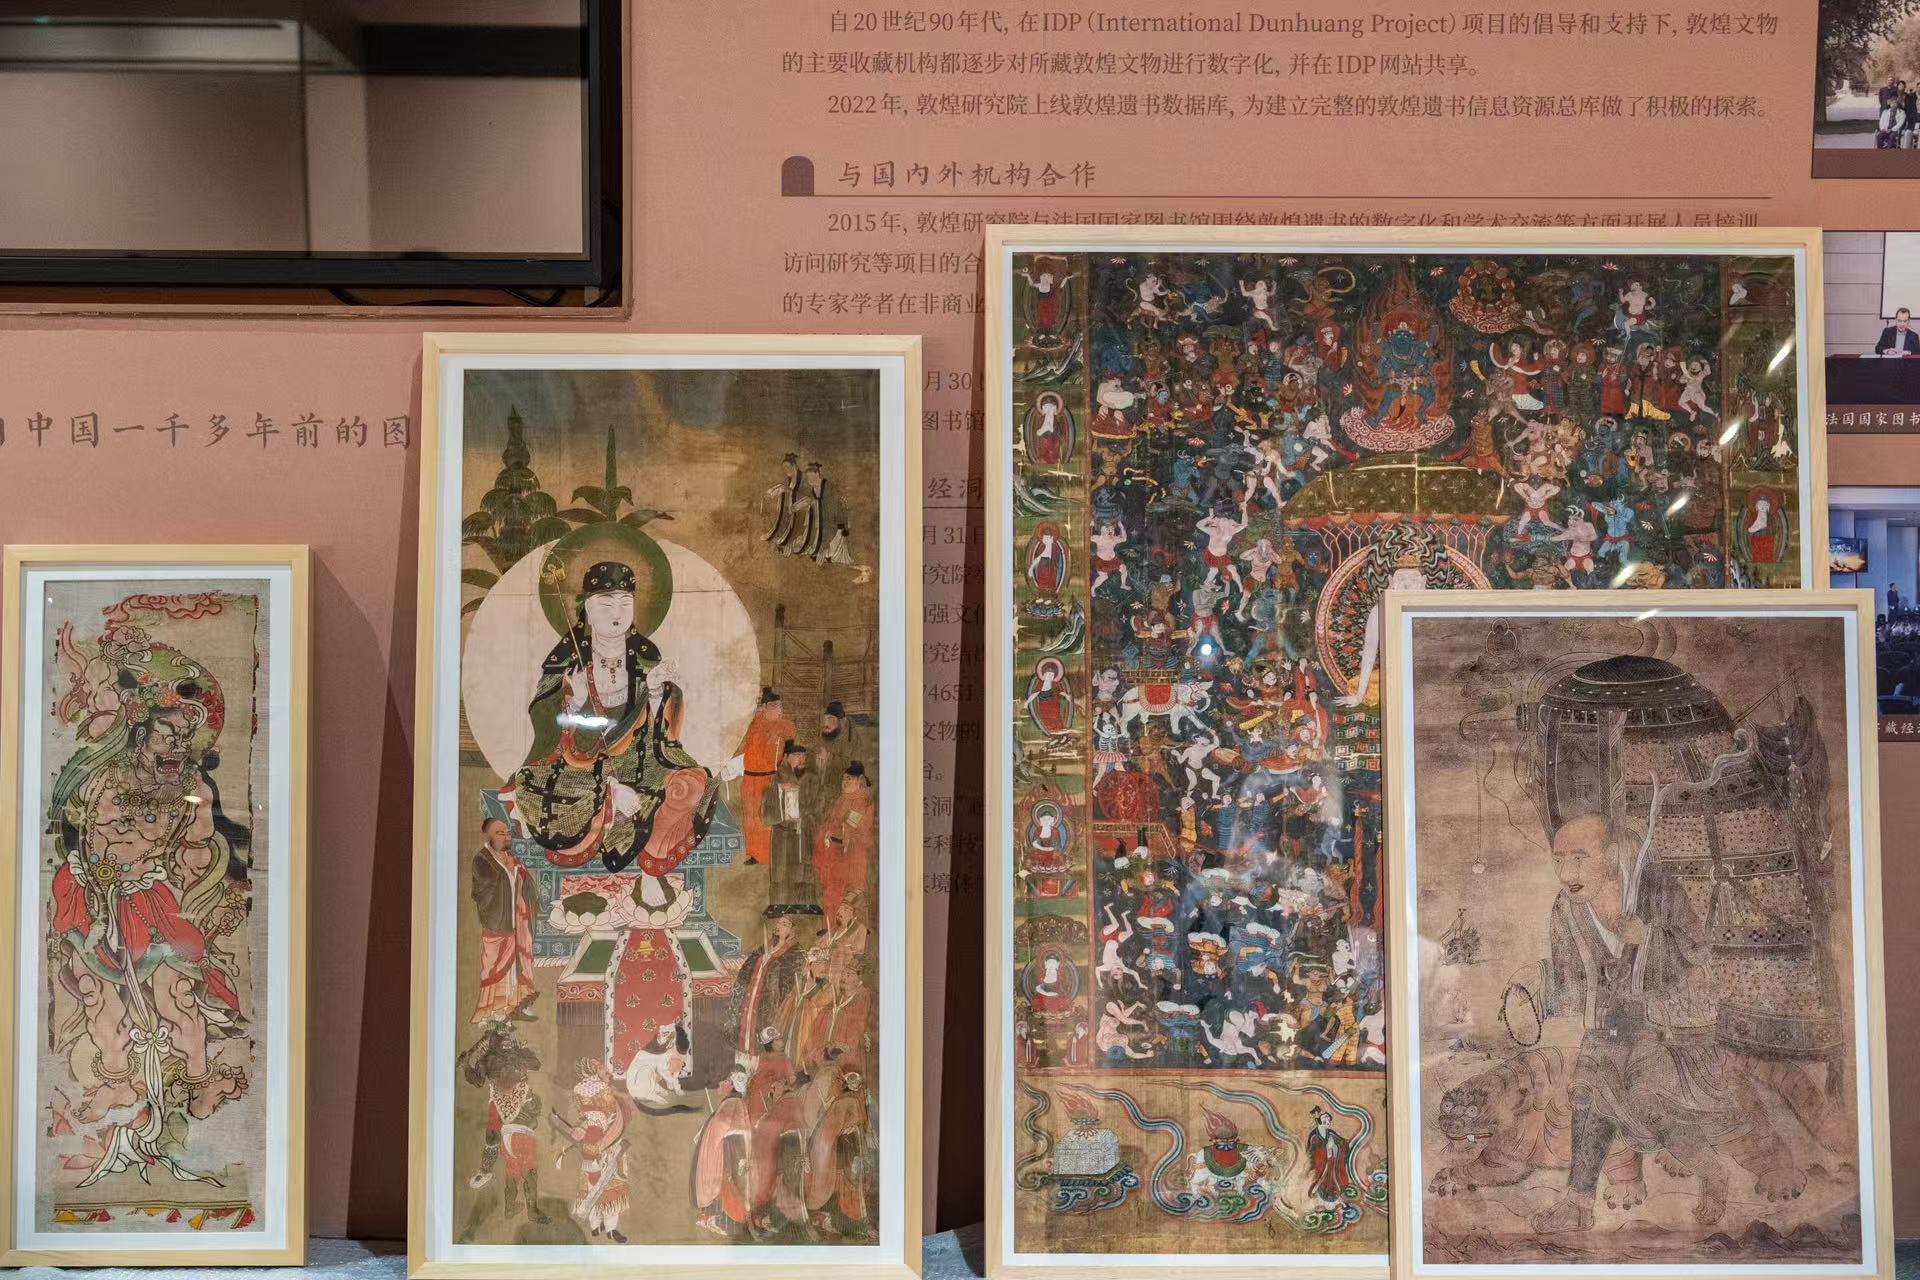 自20世纪90年代, 在IDP (International Dunhuang Project) 项目的倡导和支持下, 敦煌文物
的主要收藏机构都逐步对所藏敦煌文物进行数字化, 并在IDP网站共享。
2022年, 敦煌研究院上线敦煌遗书数据库, 为建立完整的敦煌遗书信息资源总库做了积极的探索。
与国内外机构合作
2015年, 敦煌研究院与法国国家图书馆围绕敦煌遗书的数字化和学术交流等方面开展人员培训
访问研究等项目的合
的专家学者在非商业
月30
图书馆
经洞
月31日
究院
强文化
研究结
7465
文物的
台。
经洞
字科技
境佛
中国一千多年前的图
法国国家图书
藏经